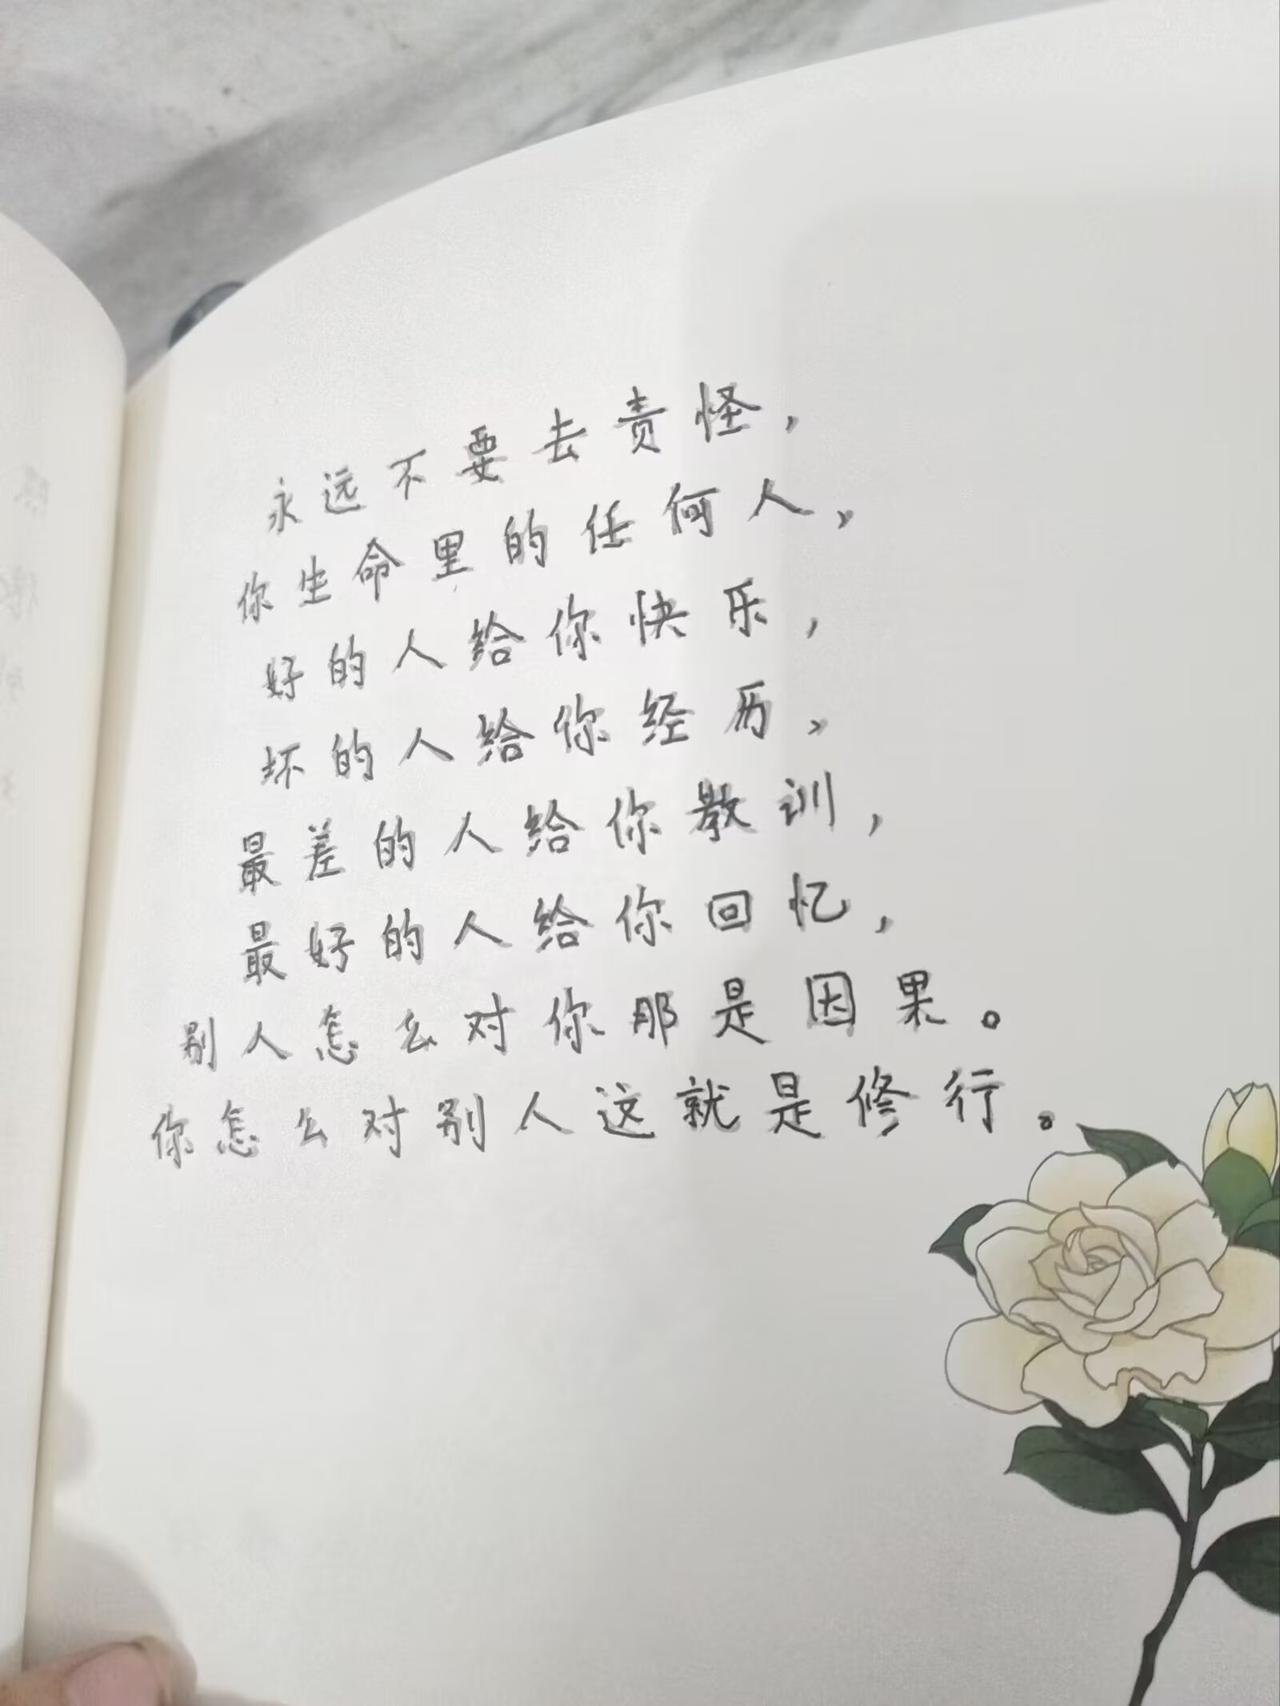 永远不要去责怪，
你生命里的任何人，
好的人给你快乐，
坏的人给你经历，
最差的人给你教训，
最好的人给你回忆，
别人怎么对你那是因果。
你怎么对别人这就是修行。